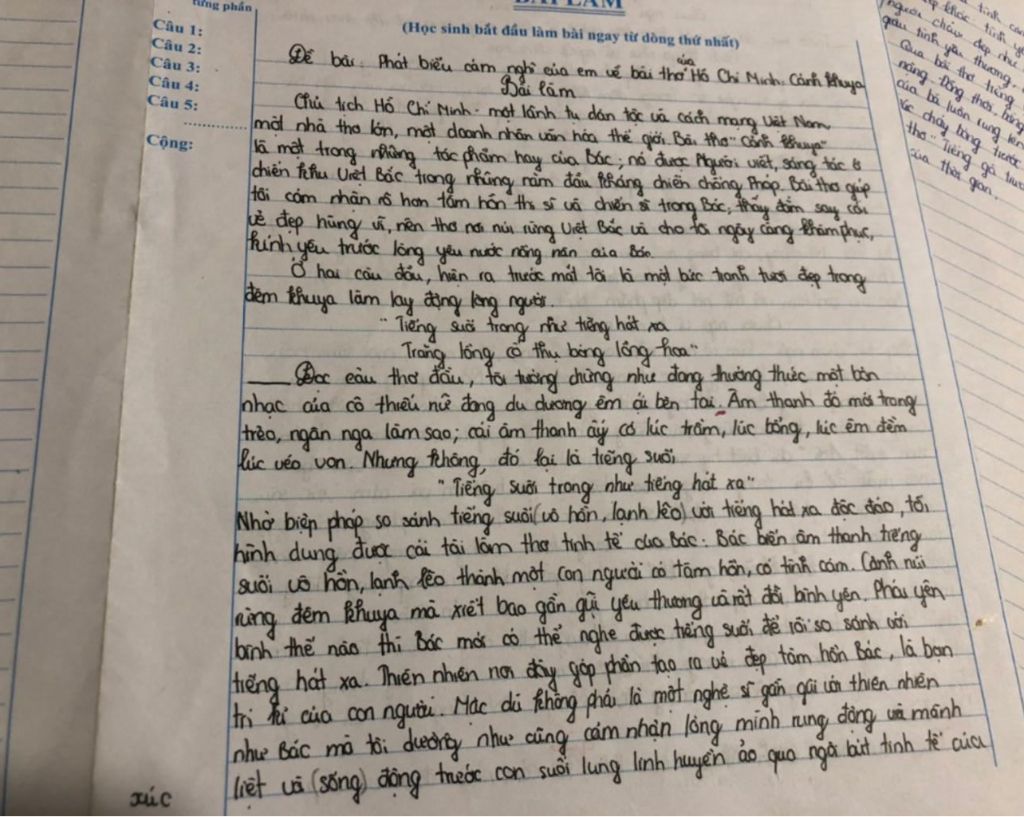 từng phần
BÀI LÀM
(Học sinh bắt đầu làm bài ngay từ dòng thứ nhất)
Câu 1:
Câu 2:
Câu 3:
Câu 4:
Câu 5:
Cộng:
Đề bài: Phát biểu cảm nghĩ của em về bài thơ của Hồ Chí Minh: Cảnh khuya
Bài làm
Chủ tịch Hồ Chí Minh - một lãnh tụ dân tộc và cách mạng Việt Nam
một nhà thơ lớn, một doanh nhân văn hóa thế giới. Bài thơ "Cảnh khuya"
là một trong những tác phẩm hay của Bác; nó được Người viết, sáng tác ở
chiến khu Việt Bắc trong những năm đầu kháng chiến chống Pháp. Bài thơ giúp
tôi cảm nhận rõ hơn tâm hồn thi sĩ và chiến sĩ trong Bác, thấy đắm say cái
vẻ đẹp hùng vĩ, nên thơ nơi núi rừng Việt Bắc và cho tôi ngày càng khâm phục,
kính yêu trước lòng yêu nước nồng nàn của Bác.
Ở hai câu đầu, hiện ra trước mắt tôi là một bức tranh tươi đẹp trong
đêm khuya làm lay động lòng người.
"Tiếng suối trong như tiếng hát xa
Trăng lồng cổ thụ bóng lồng hoa"
Đọc câu thơ đầu, tôi tưởng chừng như đang thưởng thức một bản
nhạc của cô thiếu nữ đang du dương êm ái bên tai. Âm thanh đó mới trong
trẻo, ngân nga làm sao; cái âm thanh ấy có lúc trầm, lúc bổng, lúc êm đềm
lúc véo von. Nhưng không, đó lại là tiếng suối
"Tiếng suối trong như tiếng hát xa"
Nhờ biện pháp so sánh tiếng suối (vô hồn, lạnh lẽo) với tiếng hát xa độc đáo, tôi
hình dung được cái tài làm thơ tinh tế của Bác: Bác biến âm thanh tiếng
suối vô hồn, lạnh lẽo thành một con người có tâm hồn, có tình cảm. Cảnh núi
rừng đêm khuya mà xiết bao gần gũi yêu thương và rất đỗi bình yên. Phải yên
bình thế nào thì Bác mới có thể nghe được tiếng suối để rồi so sánh với
tiếng hát xa. Thiên nhiên nơi đây góp phần tạo ra vẻ đẹp tâm hồn Bác, là bạn
tri kỉ của con người. Mặc dù không phải là một nghệ sĩ gần gũi với thiên nhiên
như Bác mà tôi dường như cũng cảm nhận lòng mình rung động và mãnh
liệt và (sống) động trước con suối lung linh huyền ảo qua ngòi bút tinh tế của
xúc